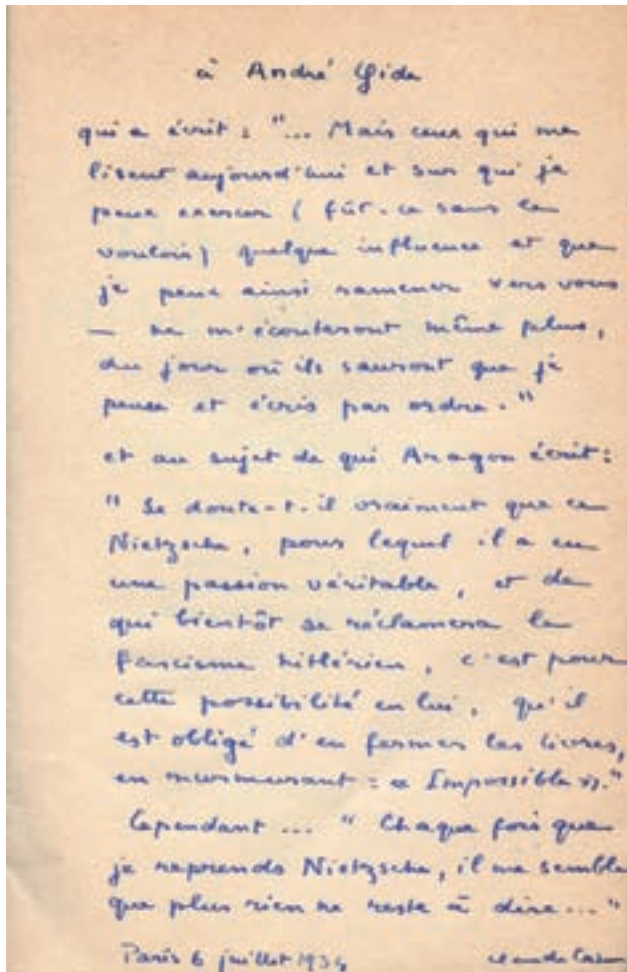 à André Gide
qui a écrit : "... Mais ceux qui me
lisent aujourd'hui et sur qui je
peux exercer ( fût-ce sans le
vouloir) quelque influence et que
je peux ainsi ramener vers vous
— ne m'écouteront même plus,
du jour où ils sauront que je
pense et écris par ordre."
et au sujet de qui Aragon écrit :
" Se doute-t-il vraiment que ce
Nietzsche, pour lequel il a eu
une passion véritable, et de
qui bientôt se réclamera le
fascisme hitlérien, c'est pour
cette possibilité en lui, qu'il
est obligé d'en fermer les livres,
en murmurant : « Impossible »."
Cependant ... " Chaque fois que
je reprends Nietzsche, il me semble
que plus rien ne reste à dire ..."
Paris 6 juillet 1934 Claude Cahun